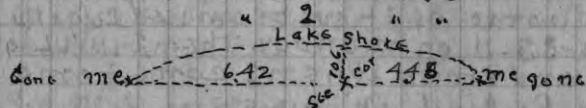 " 2 " "
Lake Shore
Conc me 6.42 cor 4.48 me gone
Sec